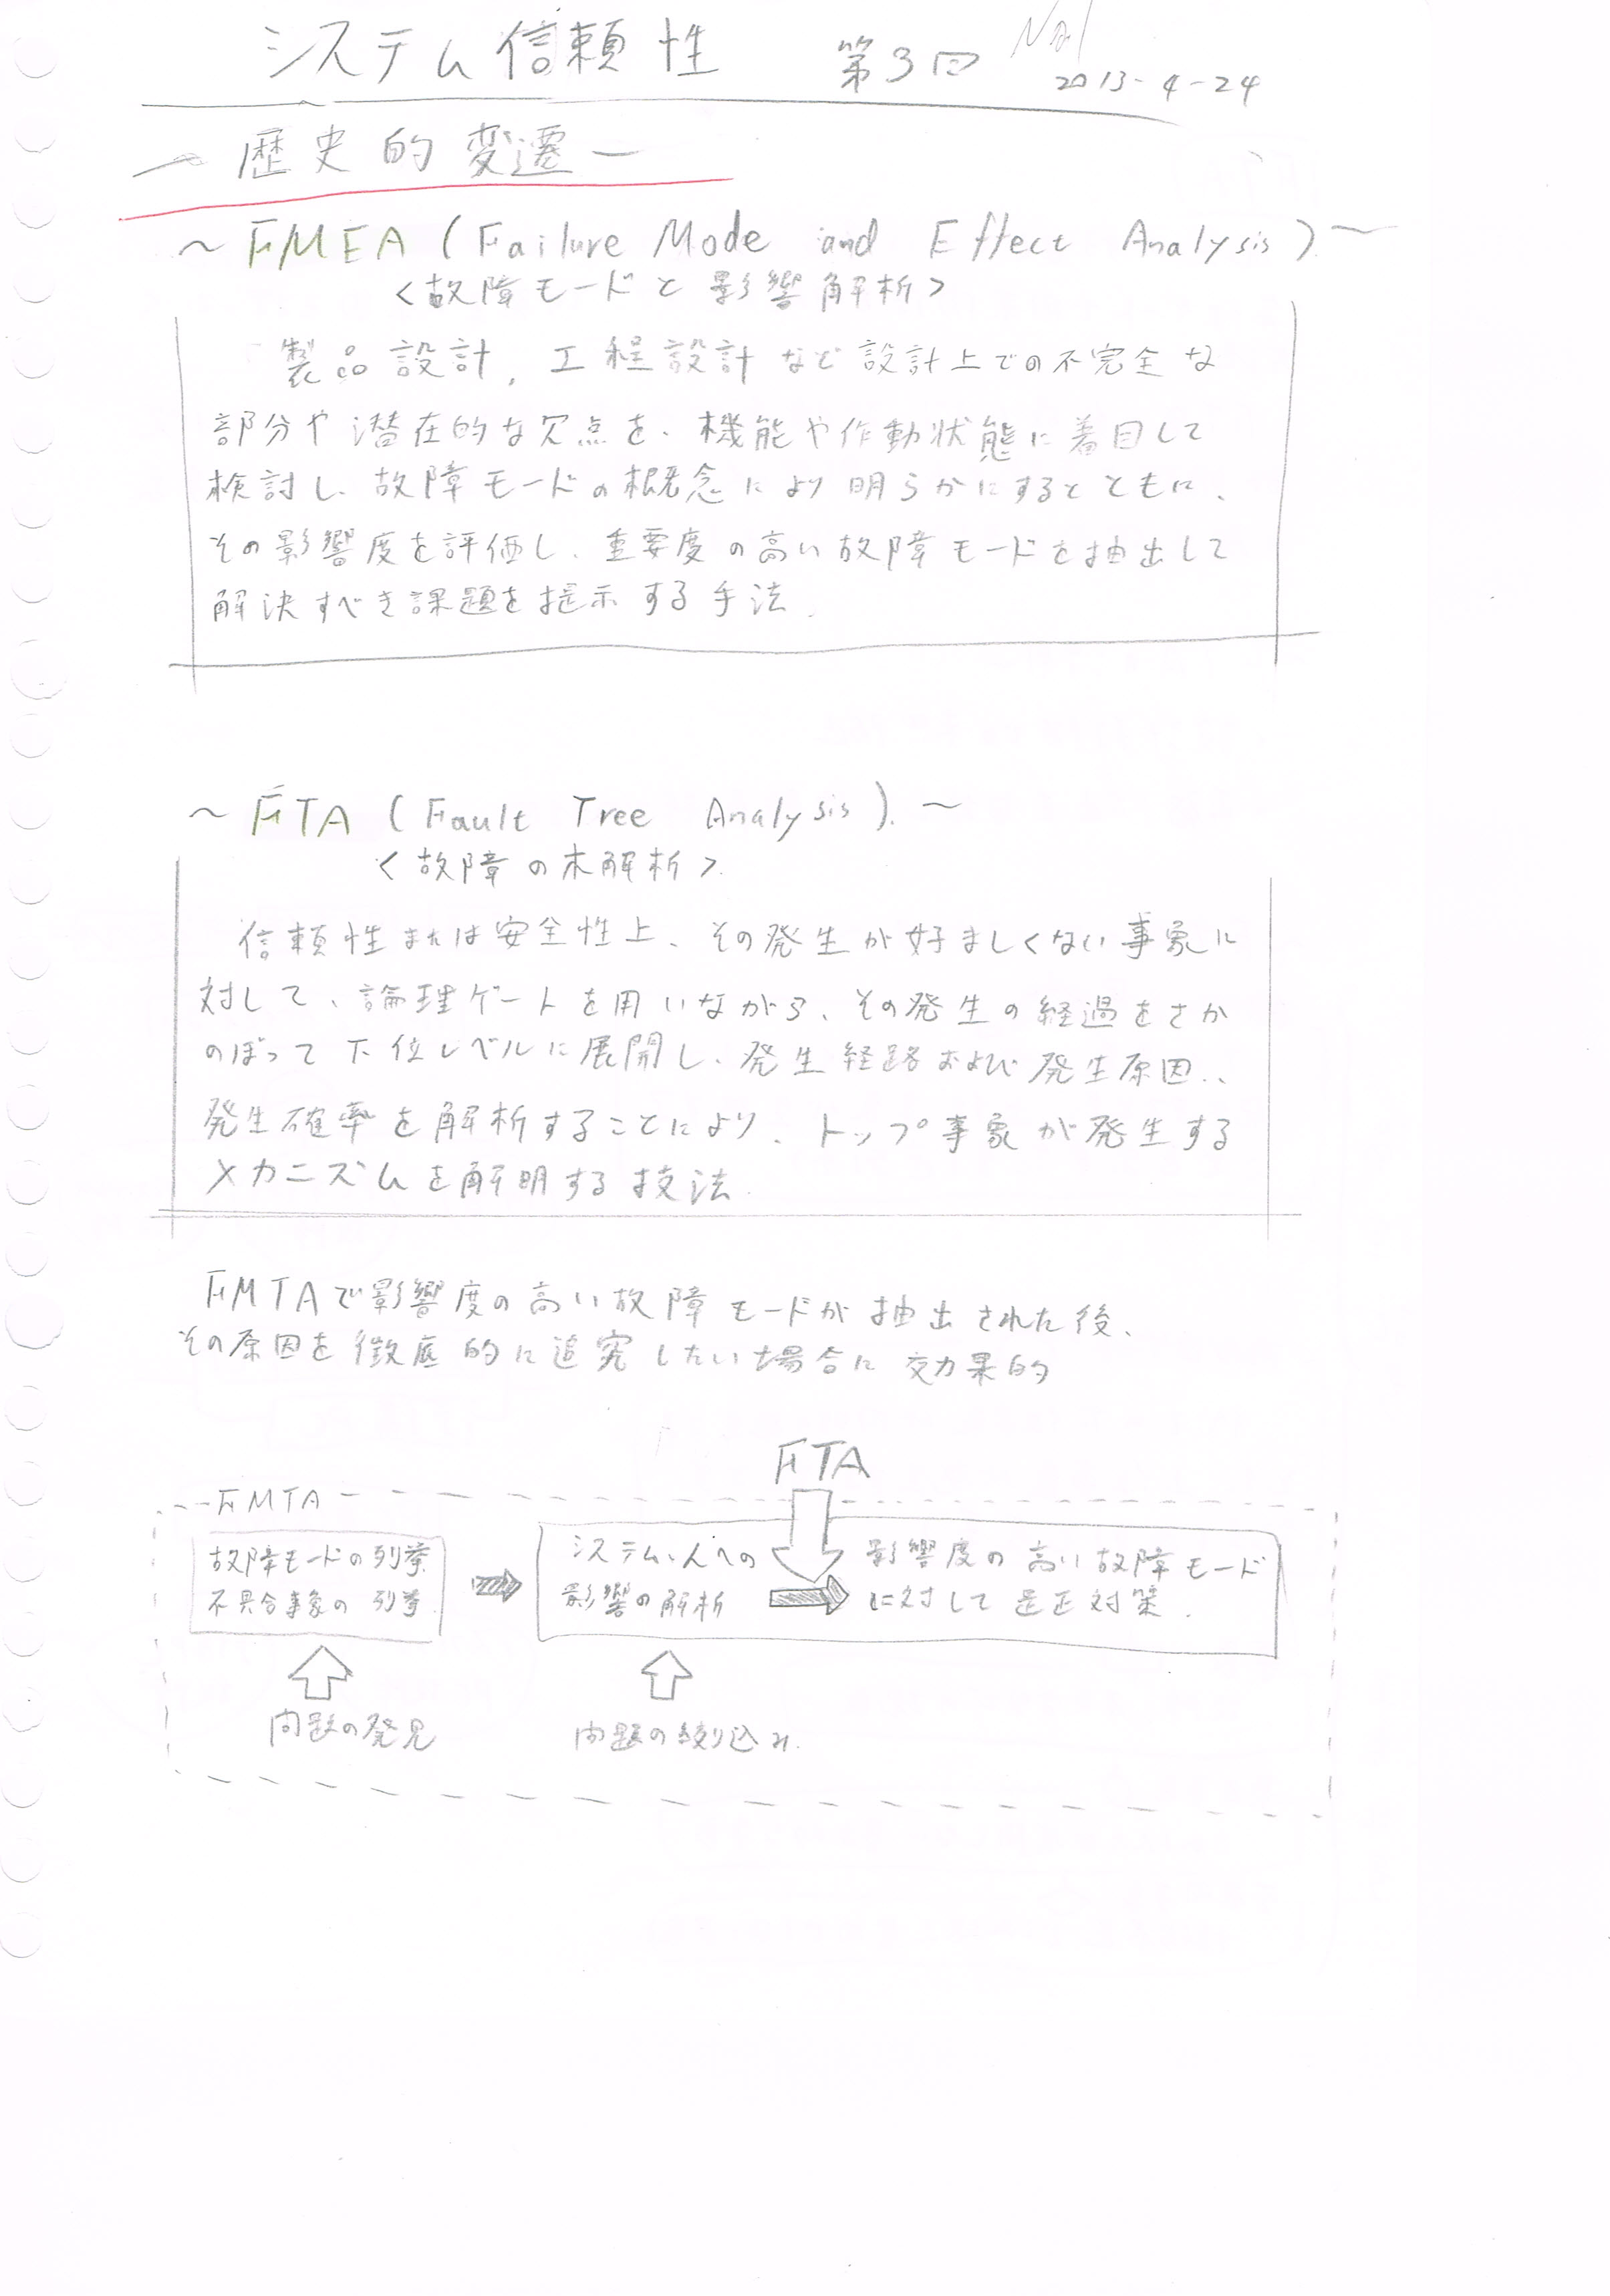 システム信頼性 第3回 No.1
2013-4-24
ー歴史的変遷ー
～FMEA (Failure Mode and Effect Analysis)～
<故障モードと影響解析>
製品設計,工程設計など設計上での不完全な
部分や潜在的な欠点を、機能や作動状態に着目して
検討し、故障モードの概念により明らかにするとともに、
その影響度を評価し、重要度の高い故障モードを抽出して
解決すべき課題を提示する手法.
～FTA (Fault Tree Analysis).～
<故障の木解析>
信頼性または安全性上、その発生が好ましくない事象に
対して、論理ゲートを用いながら、その発生の経過をさか
のぼって下位レベルに展開し、発生経路および発生原因、
発生確率を解析することにより、トップ事象が発生する
メカニズムを解明する技法.
FMTAで影響度の高い故障モードが抽出された後、
その原因を徹底的に追究したい場合に効果的
FTA
FMTA
故障モードの列挙
不具合事象の列挙
システム、人への
影響の解析
影響度の高い故障モード
に対して是正対策.
問題の発見
問題の絞り込み.